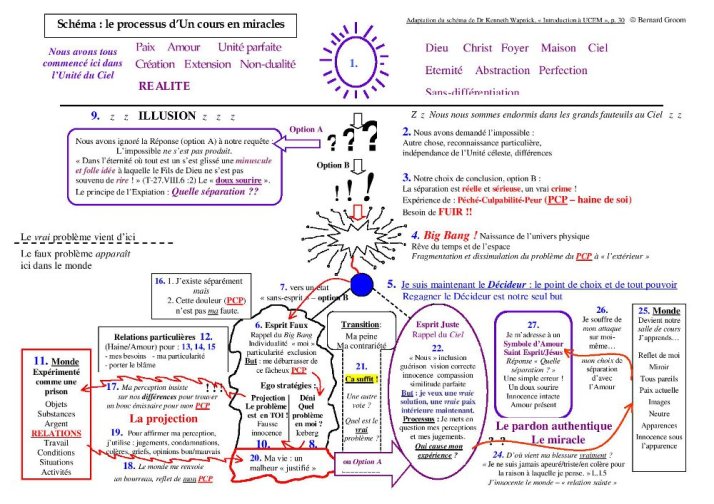 Schéma : le processus d’Un cours en miracles
Adaptation du schéma de Dr Kenneth Wapnick, « Introduction à UCEM », p. 30 © Bernard Groom
Nous avons tous
commencé ici dans
l’Unité du Ciel
Paix Amour Unité parfaite
Création Extension Non-dualité
REALITE
1.
Dieu Christ Foyer Maison Ciel
Eternité Abstraction Perfection
Sans-différentiation
9. z z ILLUSION z z z
Z z Nous nous sommes endormis dans les grands fauteuils au Ciel z z
Nous avons ignoré la Réponse (option A) à notre requête :
L’impossible ne s’est pas produit.
« Dans l’éternité où tout est un s’est glissé une minuscule
et folle idée à laquelle le Fils de Dieu ne s’est pas
souvenu de rire ! » (T-27.VIII.6 :2) Le « doux sourire ».
Le principe de l’Expiation : Quelle séparation ??
Option A
? ? ?
Option B
! ! !
2. Nous avons demandé l’impossible :
Autre chose, reconnaissance particulière,
indépendance de l’Unité céleste, différences
3. Notre choix de conclusion, option B :
La séparation est réelle et sérieuse, un vrai crime !
Expérience de : Péché-Culpabilité-Peur (PCP – haine de soi)
Besoin de FUIR !!
4. Big Bang ! Naissance de l’univers physique
Rêve du temps et de l’espace
Fragmentation et dissimulation du problème du PCP à « l’extérieur »
Le vrai problème vient d’ici
Le faux problème apparaît
ici dans le monde
16. 1. J’existe séparément
mais
2. Cette douleur (PCP)
n’est pas ma faute.
7. vers un état
« sans-esprit » – option B
5. Je suis maintenant le Décideur : le point de choix et de tout pouvoir
Regagner le Décideur est notre seul but
6. Esprit Faux
Rappel du Big Bang
Individualité « moi »
particularité exclusion
But : me débarrasser de
ce fâcheux PCP
Ego stratégies :
Projection
Le problème
est en TOI !
Fausse
innocence
10.
Déni
Quel
problème
en moi ?
Iceberg
8.
20. Ma vie : un
malheur « justifié »
Transition:
Ma peine
Ma contrariété
21.
Ca suffit !
Une autre
voie ?
Quel est le
vrai
problème ?
ou Option A
Esprit Juste
Rappel du Ciel
22.
« Nous » inclusion
guérison vision correcte
innocence compassion
similitude parfaite
But : je veux une vraie
solution, une vraie paix
intérieure maintenant.
Processus : Je mets en
question mes perceptions
et mes jugements.
Qui cause mon
expérience ?
27.
Je m’adresse à un
Symbole d’Amour
Saint Esprit/Jésus
Réponse « Quelle
séparation ? »
Une simple erreur !
Un doux sourire
Innocence intacte
Amour présent
26.
Je souffre de
mon attaque
sur moi-
même…
mon choix de
séparation
d’avec
l’Amour
25. Monde
Devient notre
salle de cours
J’apprends…
Reflet de moi
Miroir
Tous pareils
Paix actuelle
Images
Neutre
Apparences
Innocence sous
l’apparence
Le pardon authentique
Le miracle
? ?
24. D’où vient ma blessure vraiment ?
« Je ne suis jamais apeuré/triste/en colère pour
la raison à laquelle je pense. » L.15
J’innocente le monde – « relation sainte »
11. Monde
Expérimenté
comme une
prison
Objets
Substances
Argent
RELATIONS
Travail
Conditions
Situations
Activités
Relations particulières 12.
(Haine/Amour) pour : 13, 14, 15
- mes besoins - ma particularité
- porter le blâme
! ! !
17. Ma perception insiste
sur nos différences pour trouver
un bouc émissaire pour mon PCP
La projection
19. Pour affirmer ma perception,
j’utilise : jugements, condamnations,
colères, griefs, opinions, bon/mauvais
18. Le monde me renvoie
un bourreau, reflet de mon PCP